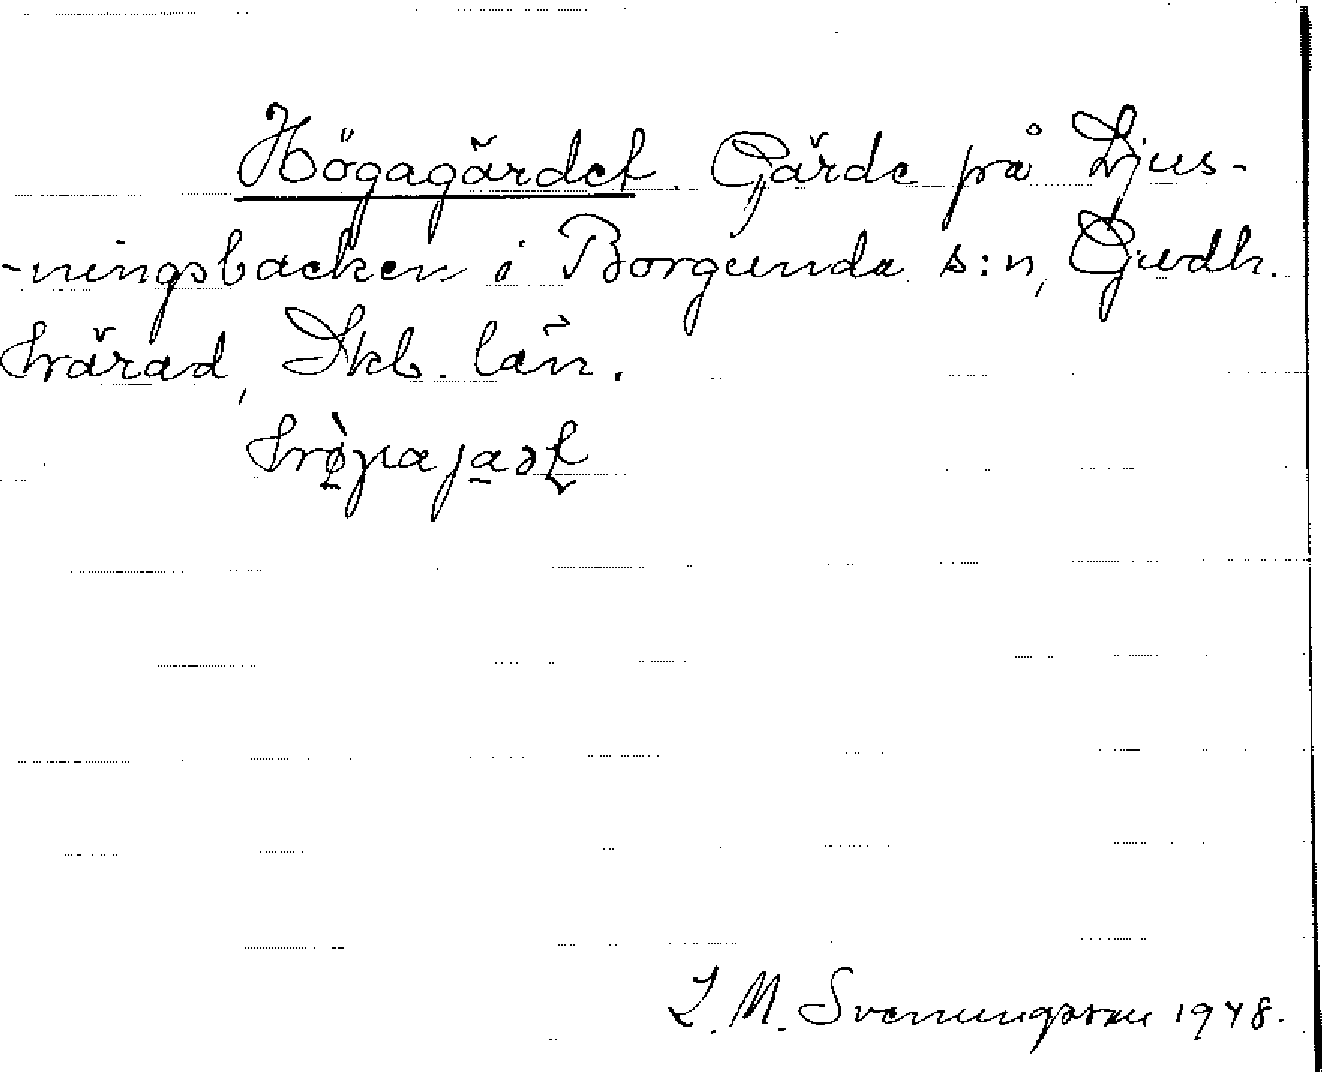 Högagärdet. Gärde på Ljus-
-ningsbacken i Borgunda s:n, Gudh.
härad, Skb. län.
L. M. Svenungsson 1948.